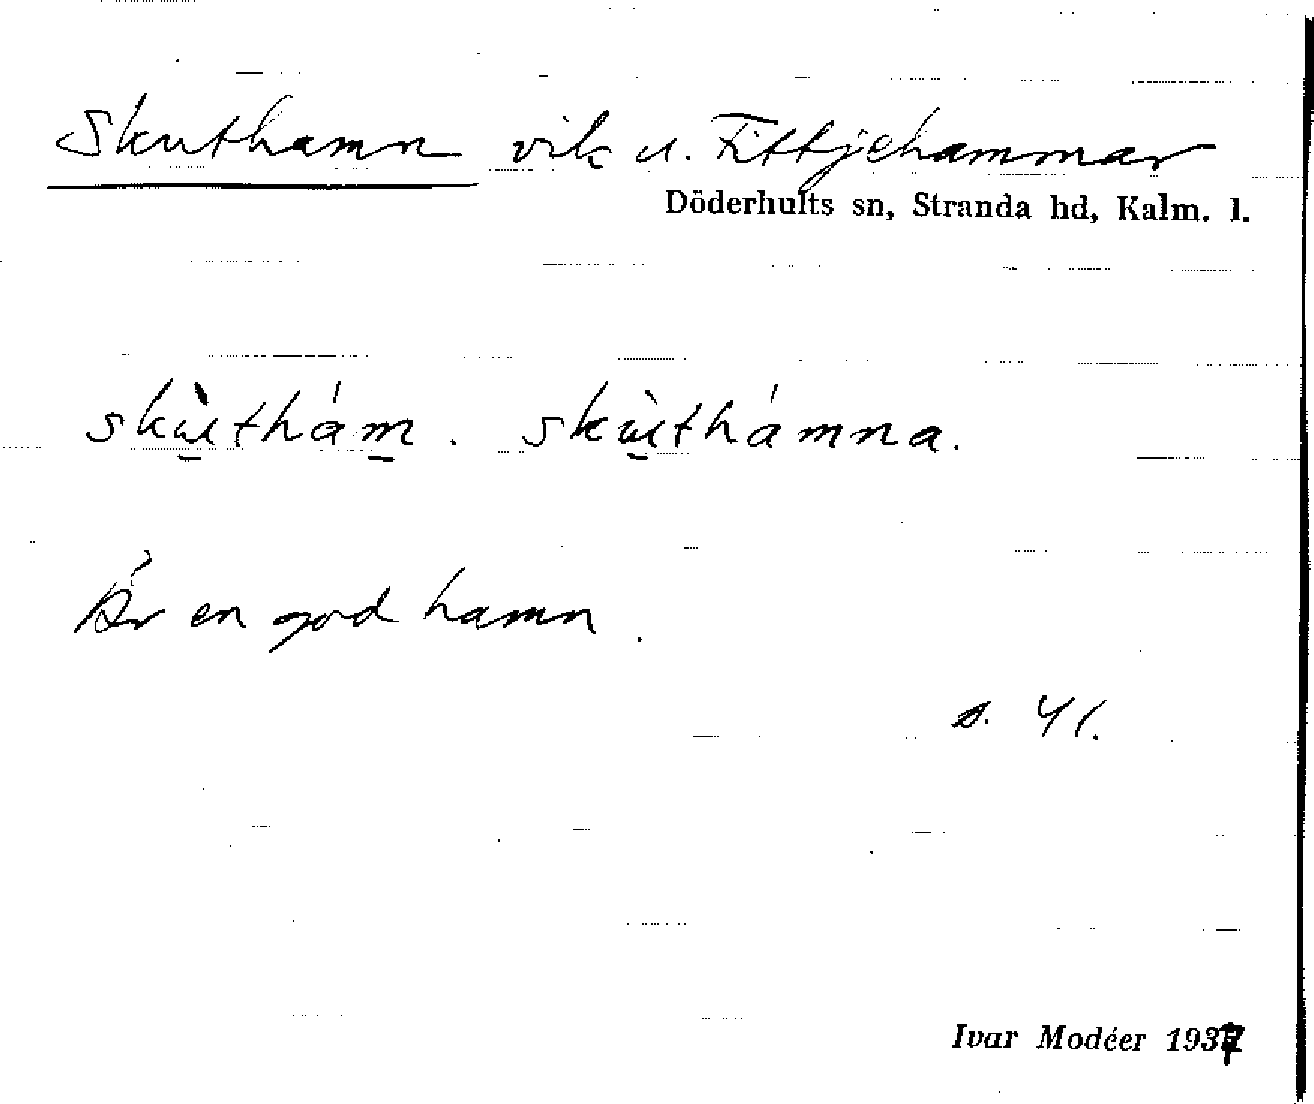 Skuthamn vik u. Fittjehammar
Döderhults sn, Stranda hd, Kalm. l.
skù̱thám̱. skù̱thámna.
Är en god hamn.
s. 41.
Ivar Modéer 1937